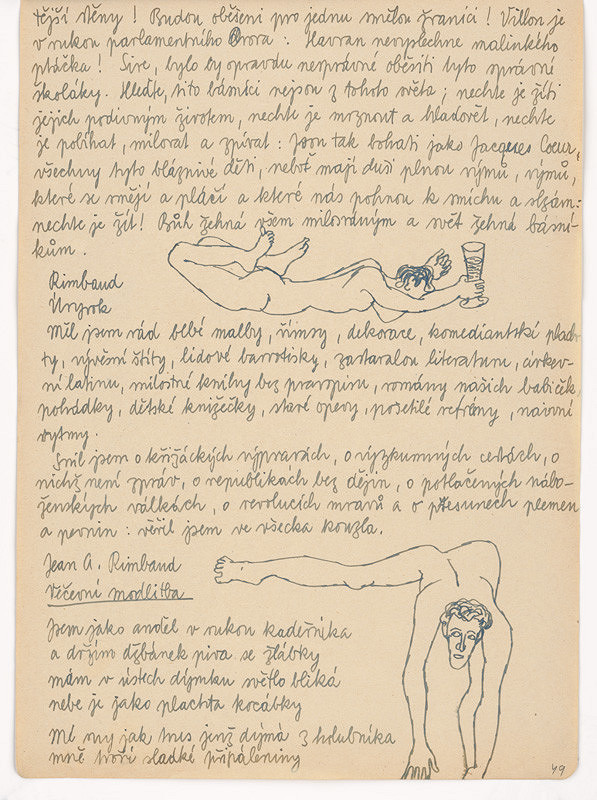 tější věny! Budou oběšeni pro jednu smělou žranici! Villon je
v rukou parlamentního Dvora: Havran nevyplechne malinkého
ptáčka! Sire, bylo by opravdu nesprávné oběsiti tyto správné
školáky. Hleďte, tito básníci nejsou z tohoto světa; nechte je žíti
jejich podivným životem, nechte je mrznout a hladovět, nechte
je pobíhat, milovat a zpívat: Jsou tak bohati jako Jacques Coeur,
všechny tyto bláznivé děti, neboť mají duši plnou rýmů, rýmů,
které se smějí a pláčí a které nás pohnou k smíchu a slzám:
nechte je žít! Bůh žehná všem milosrdným a svět žehná básní-
kům.
Rimbaud
Úryvok
Míl jsem rád blbé malby, římsy, dekorace, komediantské plach-
ty, vývěsní štíty, lidové barvotisky, zastaralou literaturu, církev-
ní latinu, milostné knihy bez pravopisu, romány našich babiček,
pohádky, dětské knížečky, staré opery, pošetilé refrény, naivní
rytmy.
Snil jsem o křižáckých výpravách, o výzkumných cestách, o
nichž není zpráv, o republikách bez dějin, o potlačených nábo-
ženských válkách, o revolucích mravů a o přesunech plemen
a pevnin: věřil jsem ve všecka kouzla.
Jean A. Rimbaud
Večerní modlitba
Jsem jako anděl v rukou kadeřníka
a držím džbánek piva se žlábky
mám v ústech dýmku světlo bliká
nebe je jako plachta kocábky
Mé sny jak trus jenž dýmá z holubníka
mně tvoří sladké připáleniny
49